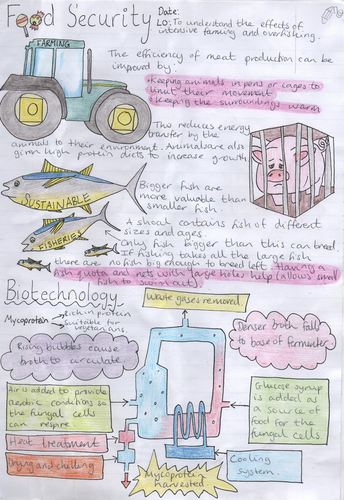 Food Security
Date:
LO: To understand the effects of
intensive farming and overfishing.
FARMING
The efficiency of meat production can be
improved by:
• Keeping animals in pens or cages to
limit their movement
• Keeping the surroundings warm
This reduces energy
transfer by the
animals to their environment. Animals are also
given high protein diets to increase growth.
SUSTAINABLE
FISHERIES
Bigger fish are
more valuable than
smaller fish.
A shoal contains fish of different
sizes and ages.
Only fish bigger than this can breed.
If fishing takes all the large fish
there are no fish big enough to breed left. Having a
fish quota and nets with large holes help (allows small
fish to swim out)
Biotechnology
Mycoprotein
Rich in protein
Suitable for
vegetarians
Waste gases removed
Rising bubbles cause
broth to circulate
Denser broth falls
to base of fermenter
Air is added to provide
aerobic conditions so
the fungal cells
can respire
Glucose syrup
is added as
a source of
food for the
fungal cells
Heat treatment
Drying and chilling
Mycoprotein
harvested
Cooling
System